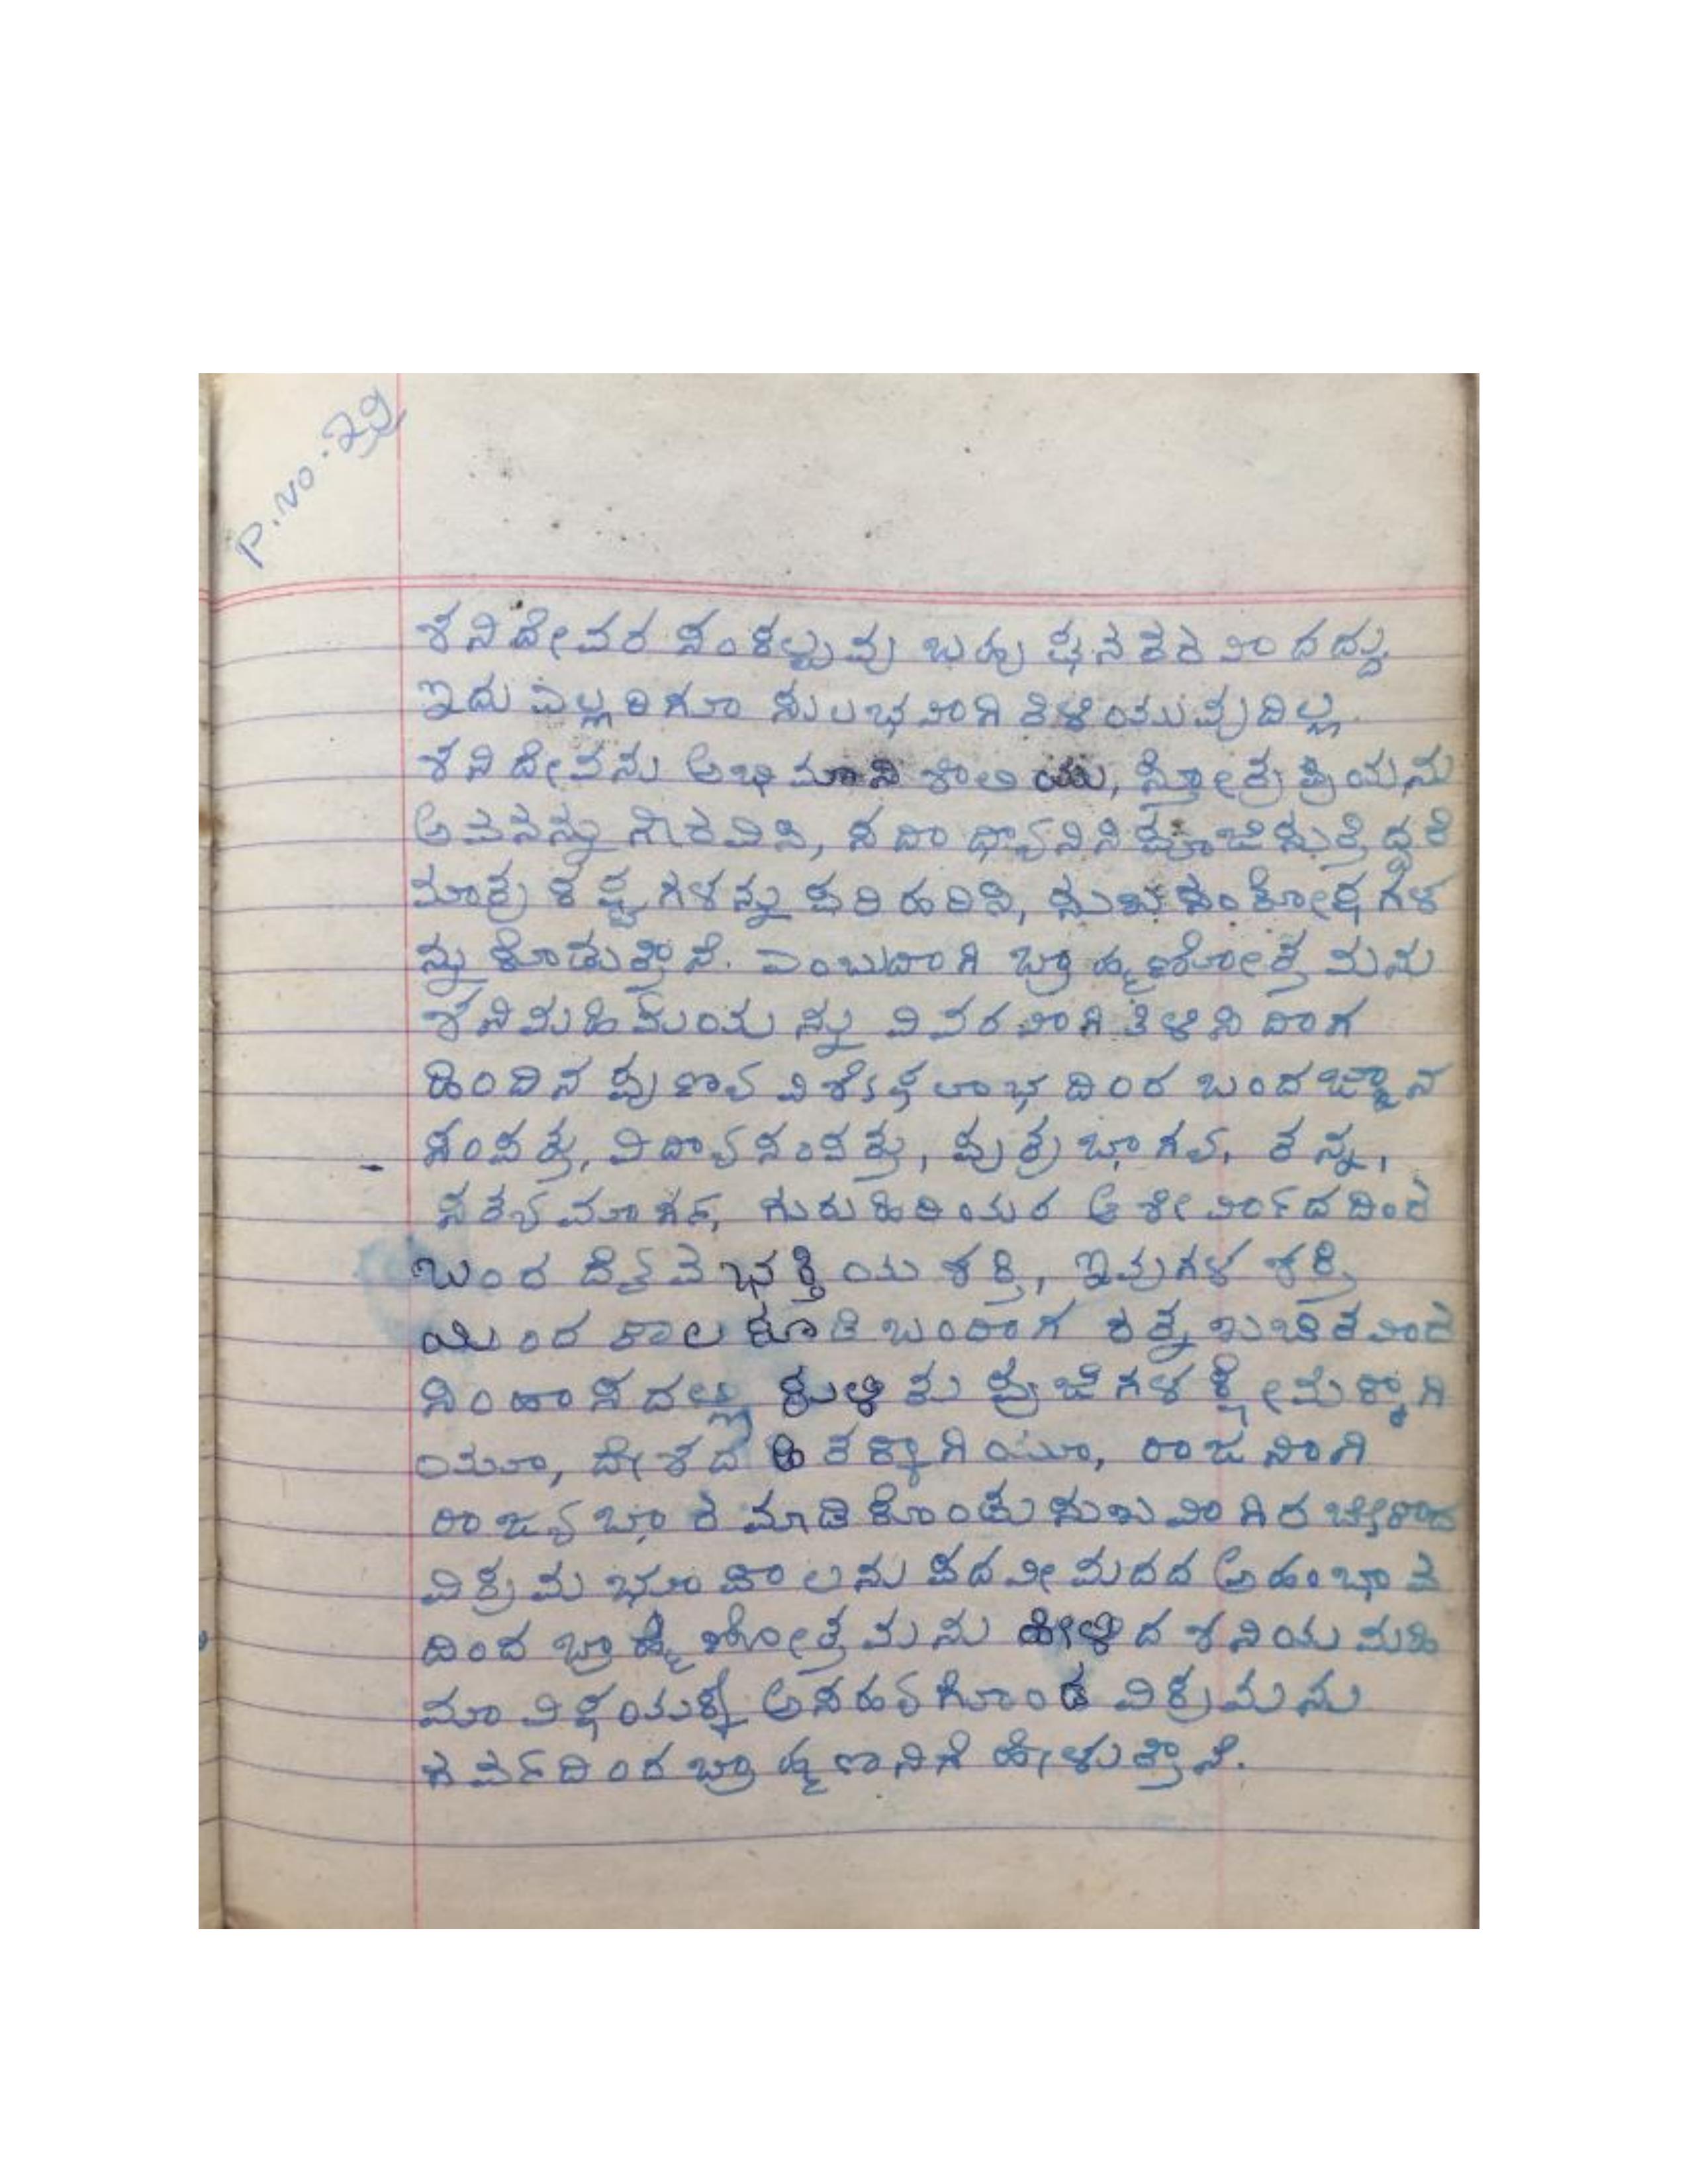 P.NO-29
ಶನಿದೇವರ ಸಂಕಲ್ಪವು ಬಹು ಘನತರವಾದದ್ದು
ಇದು ಎಲ್ಲರಿಗೂ ಸುಲಭವಾಗಿ ತಿಳಿಯುವುದಿಲ್ಲ.
ಶನಿದೇವನು ಅಭಿಮಾನಿಶಾಲಿಯು, ಸ್ತೋತ್ರಪ್ರಿಯನು
ಅವನನ್ನು ಗೌರವಿಸಿ, ಸದಾ ಧ್ಯಾನಿಸಿ ಪೂಜಿಸುತ್ತಿದ್ದರೆ
ಮಾತ್ರ ಕಷ್ಟಗಳನ್ನು ಪರಿಹರಿಸಿ, ಸುಖಸಂತೋಷಗಳ
ನ್ನು ಕೊಡುತ್ತಾನೆ. ಎಂಬುದಾಗಿ ಬ್ರಾಹ್ಮಣೋತ್ತಮನು
ಶನಿಮಹಿಮೆಯನ್ನು ವಿವರವಾಗಿ ತಿಳಿಸಿದಾಗ
ಹಿಂದಿನ ಪುಣ್ಯ ವಿಶೇಷ ಲಾಭದಿಂದ ಬಂದ ಜ್ಞಾನ
ಸಂಪತ್ತು, ವಿದ್ಯಾಸಂಪತ್ತು, ಪುತ್ರ ಭಾಗ್ಯ, ತನ್ನ,
ಸತ್ಯಮಾರ್ಗ, ಗುರುಹಿರಿಯರ ಆಶೀರ್ವಾದದಿಂದ
ಬಂದ ದೈವಭಕ್ತಿಯ ಶಕ್ತಿ, ಇವುಗಳ ಶಕ್ತಿ
ಯಿಂದ ಕಾಲ ಕೂಡಿ ಬಂದಾಗ ರತ್ನ ಖಚಿತವಾದ
ಸಿಂಹಾಸನದಲ್ಲಿ ಕುಳಿತು ಪ್ರಜೆಗಳ ಕ್ಷೇಮಕ್ಕಾಗಿ
ಯೂ, ದೇಶದ ಹಿತಕ್ಕಾಗಿಯೂ, ರಾಜನಾಗಿ
ರಾಜ್ಯಭಾರ ಮಾಡಿಕೊಂಡು ಸುಖವಾಗಿರಬೇಕಾದ
ವಿಕ್ರಮ ಭೂಪಾಲನು ಪದವೀಮದದ ಅಹಂಭಾವ
ದಿಂದ ಬ್ರಾಹ್ಮಣೋತ್ತಮನು ಹೇಳಿದ ಶನಿಯ ಮಹಿ
ಮಾ ವಿಷಯಕ್ಕೆ ಅಸಹ್ಯಗೊಂಡ ವಿಕ್ರಮನು
ಗರ್ವದಿಂದ ಬ್ರಾಹ್ಮಣನಿಗೆ ಹೇಳುತ್ತಾನೆ.